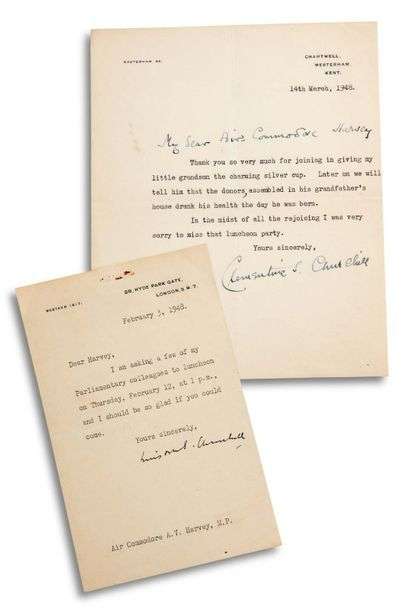 WESTERHAM 81.
CHARTWELL,
WESTERHAM,
KENT.
14th March, 1948.
My Dear Air Commodore Harvey
Thank you so very much for joining in giving my
little grandson the charming silver cup. Later on we will
tell him that the donors, assembled in his grandfather's
house drank his health the day he was born.
In the midst of all the rejoicing I was very
sorry to miss that luncheon party.
Yours sincerely,
Clementine S. Churchill
WESTERN 1617.
28, HYDE PARK GATE,
LONDON, S.W.7.
February 3, 1948.
Dear Harvey,
I am asking a few of my
Parliamentary colleagues to luncheon
on Thursday, February 12, at 1 p.m.,
and I should be so glad if you could
come.
Yours sincerely,
Winston S. Churchill
Air Commodore A.V. Harvey, M.P.